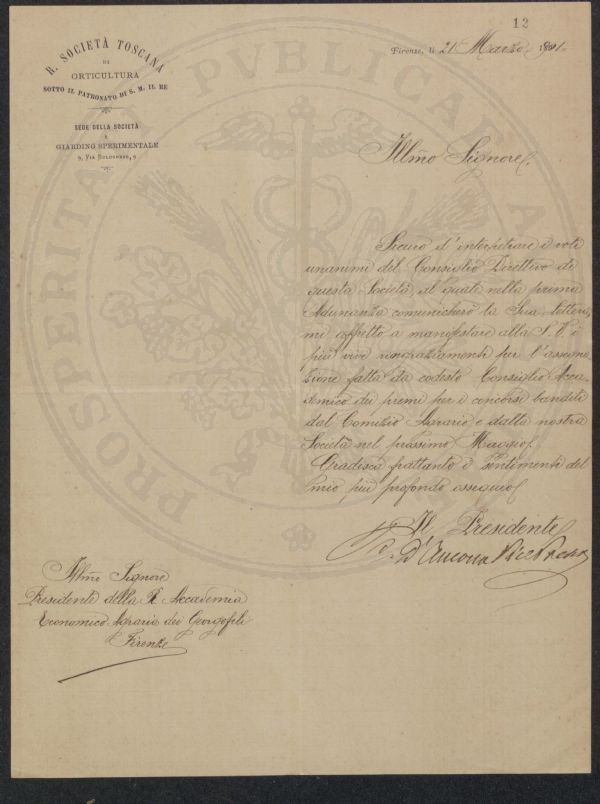 12
R. SOCIETÀ TOSCANA
DI
ORTICULTURA
SOTTO IL PATRONATO DI S. M. IL RE
SEDE DELLA SOCIETÀ
E
GIARDINO SPERIMENTALE
9, Via Bolognese, 9
Firenze, li 21 Marzo 1891
PROSPERITATI PVBLICAE
Illmo Signore
Sicuro d'interpretrare i voti
unanimi del Consiglio Direttivo di
questa Società, al quale nella prima
Adunanza comunicherò la Sua lettera,
mi affretto a manifestare alla S. V. i
più vivi ringraziamenti per l'assegna
zione fatta da codesto Consiglio Acca-
demico dei premi per i concorsi banditi
dal Comizio Agrario e dalla nostra
Società nel prossimo Maggio.
Gradisca frattanto i sentimenti del
mio più profondo ossequio
Il Presidente
D'Ancona Vice Pres
Illmo Signore
Presidente della R. Accademia
Economico Agraria dei Georgofili
Firenze